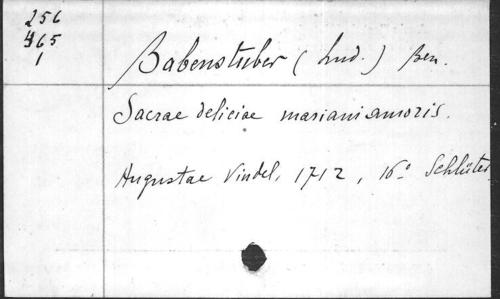 256
465
1
Babenstuber (Lud.) Ben.
Sacrae deliciae mariani amoris.
Augustae Vindel, 1712, 16° Schlüter